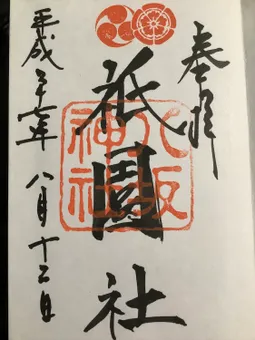 奉拝
祇園社
八坂
神社
平成二十七年八月十二日